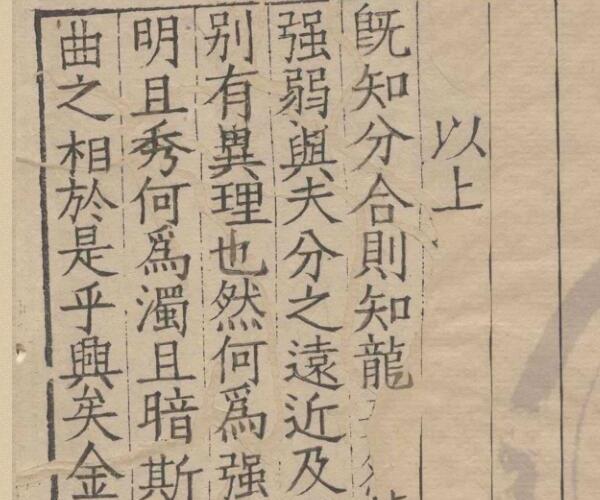 以上
既知分合則知龍
强弱與夫分之遠近及
别有異理也然何爲強
明且秀何爲濁且暗斯
曲之相於是乎興矣金